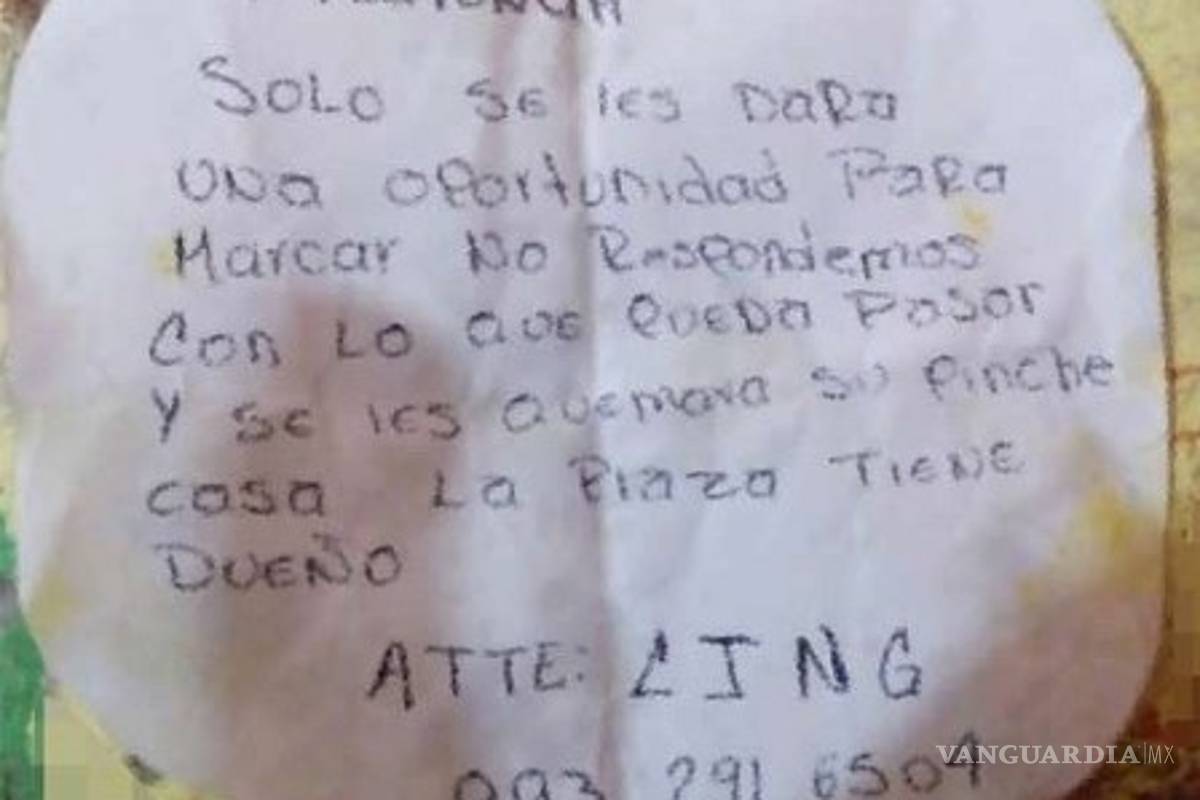 SOLO SE les DARA
UNA oportunidad PARA
Marcar No Respondemos
Con LO QUE PUEDA Pasar
Y SE les quemara su Pinche
casa La Plaza TIENE
DUEÑO
ATTE: CJNG
993 291 6509
VANGUARDIA|MX